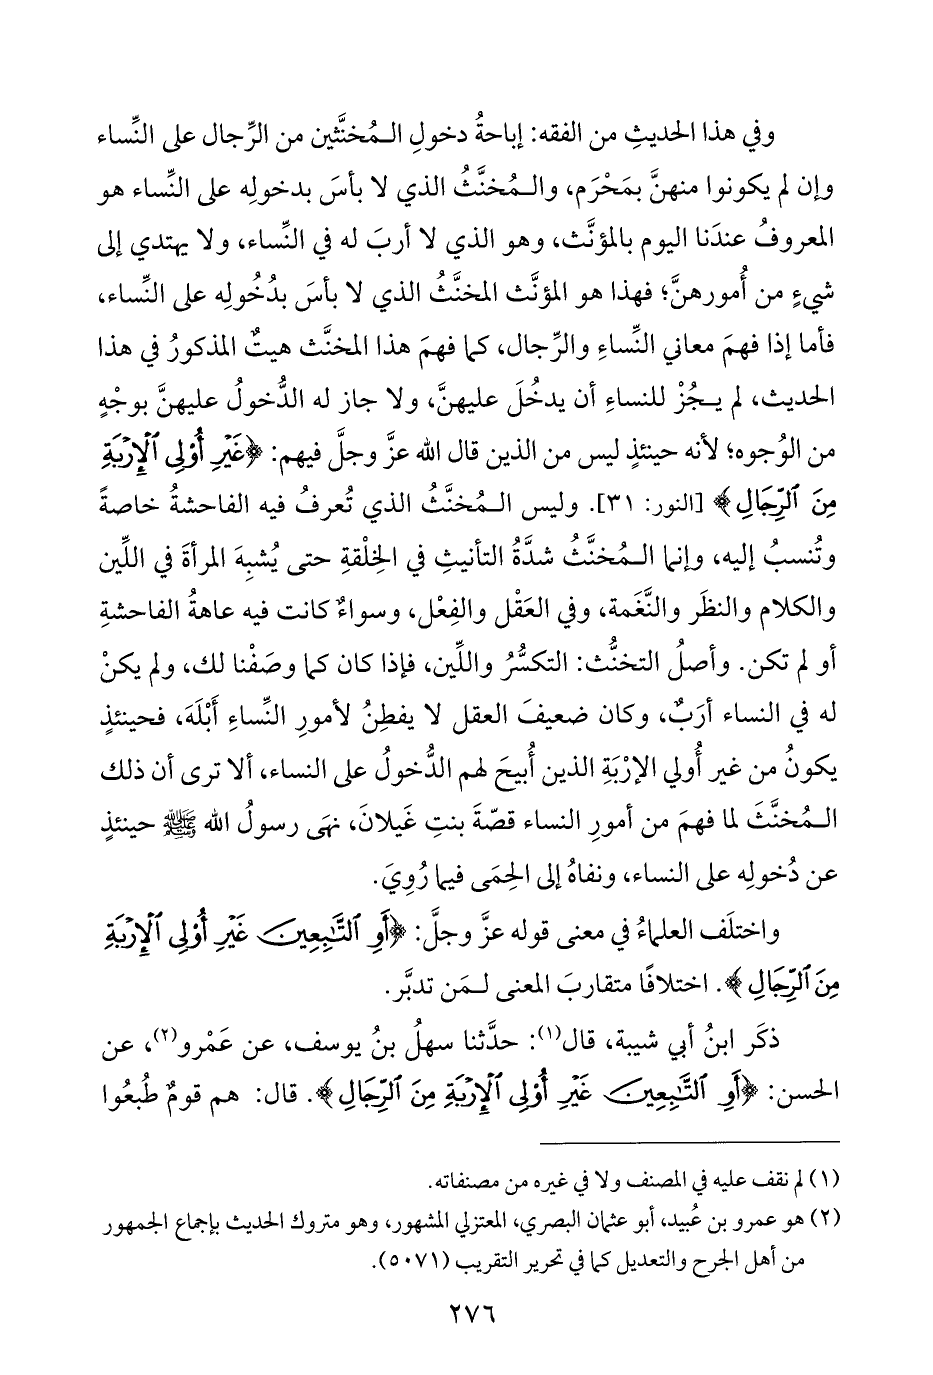 وفي هذا الحديثِ من الفقه: إباحةُ دخولِ الـمُخنَّثين من الرِّجال على النِّساء
وإن لم يكونوا منهنَّ بمَحْرَم، والـمُخنَّثُ الذي لا بأسَ بدخولِه على النِّساء هو
المعروفُ عندَنا اليوم بالمؤنَّث، وهو الذي لا أربَ له في النِّساء، ولا يهتدي إلى
شيءٍ من أُمورهنَّ؛ فهذا هو المؤنَّث المخنَّثُ الذي لا بأسَ بدُخُولِه على النِّساء،
فأما إذا فهمَ معاني النِّساءِ والرِّجال، كما فهمَ هذا المخنَّث هيتٌ المذكورُ في هذا
الحديث، لم يـجُزْ للنساءِ أن يدخُلَ عليهنَّ، ولا جاز له الدُّخولُ عليهنَّ بوجْهٍ
من الوُجوه؛ لأنه حينئذٍ ليس من الذين قال الله عزَّ وجلَّ فيهم: ﴿غَيْرِ أُوْلِى ٱلْإِرْبَةِ
مِنَ ٱلرِّجَالِ﴾ [النور: ٣١]. وليس الـمُخنَّثُ الذي تُعرفُ فيه الفاحشةُ خاصةً
وتُنسبُ إليه، وإنما الـمُخنَّثُ شدَّةُ التأنيثِ في الخِلْقةِ حتى يُشبِهَ المرأةَ في اللِّين
والكلام والنظَر والنَّغَمة، وفي العَقْل والفِعْل، وسواءٌ كانت فيه عاهةُ الفاحشةِ
أو لم تكن. وأصلُ التخنُّث: التكسُّرُ واللِّين، فإذا كان كما وصَفْنا لك، ولم يكنْ
له في النساء أرَبٌ، وكان ضعيفَ العقل لا يفطِنُ لأمورِ النِّساءِ أَبْلَهَ، فحينئذٍ
يكونُ من غير أُولي الإرْبَةِ الذين أُبيحَ لهم الدُّخولُ على النساء، ألا ترى أن ذلك
الـمُخنَّثَ لما فهمَ من أمورِ النساء قصّةَ بنتِ غَيلانَ، نهَى رسولُ الله ﷺ حينئذٍ
عن دُخولِه على النساء، ونفاهُ إلى الحِمَى فيما رُوِيَ.
واختلَف العلماءُ في معنى قوله عزَّ وجلَّ: ﴿أَوِ ٱلتَّٰبِعِينَ غَيْرِ أُوْلِى ٱلْإِرْبَةِ
مِنَ ٱلرِّجَالِ﴾. اختلافًا متقاربَ المعنى لـمَن تدبَّر.
ذكَر ابنُ أبي شيبة، قال(١): حدَّثنا سهلُ بنُ يوسف، عن عَمْرو(٢)، عن
الحسن: ﴿أَوِ ٱلتَّٰبِعِينَ غَيْرِ أُوْلِى ٱلْإِرْبَةِ مِنَ ٱلرِّجَالِ﴾. قال: هم قومٌ طُبعُوا
(١) لم نقف عليه في المصنف ولا في غيره من مصنفاته.
(٢) هو عمرو بن عُبيد، أبو عثمان البصري، المعتزلي المشهور، وهو متروك الحديث بإجماع الجمهور
من أهل الجرح والتعديل كما في تحرير التقريب (٥٠٧١).
٢٧٦